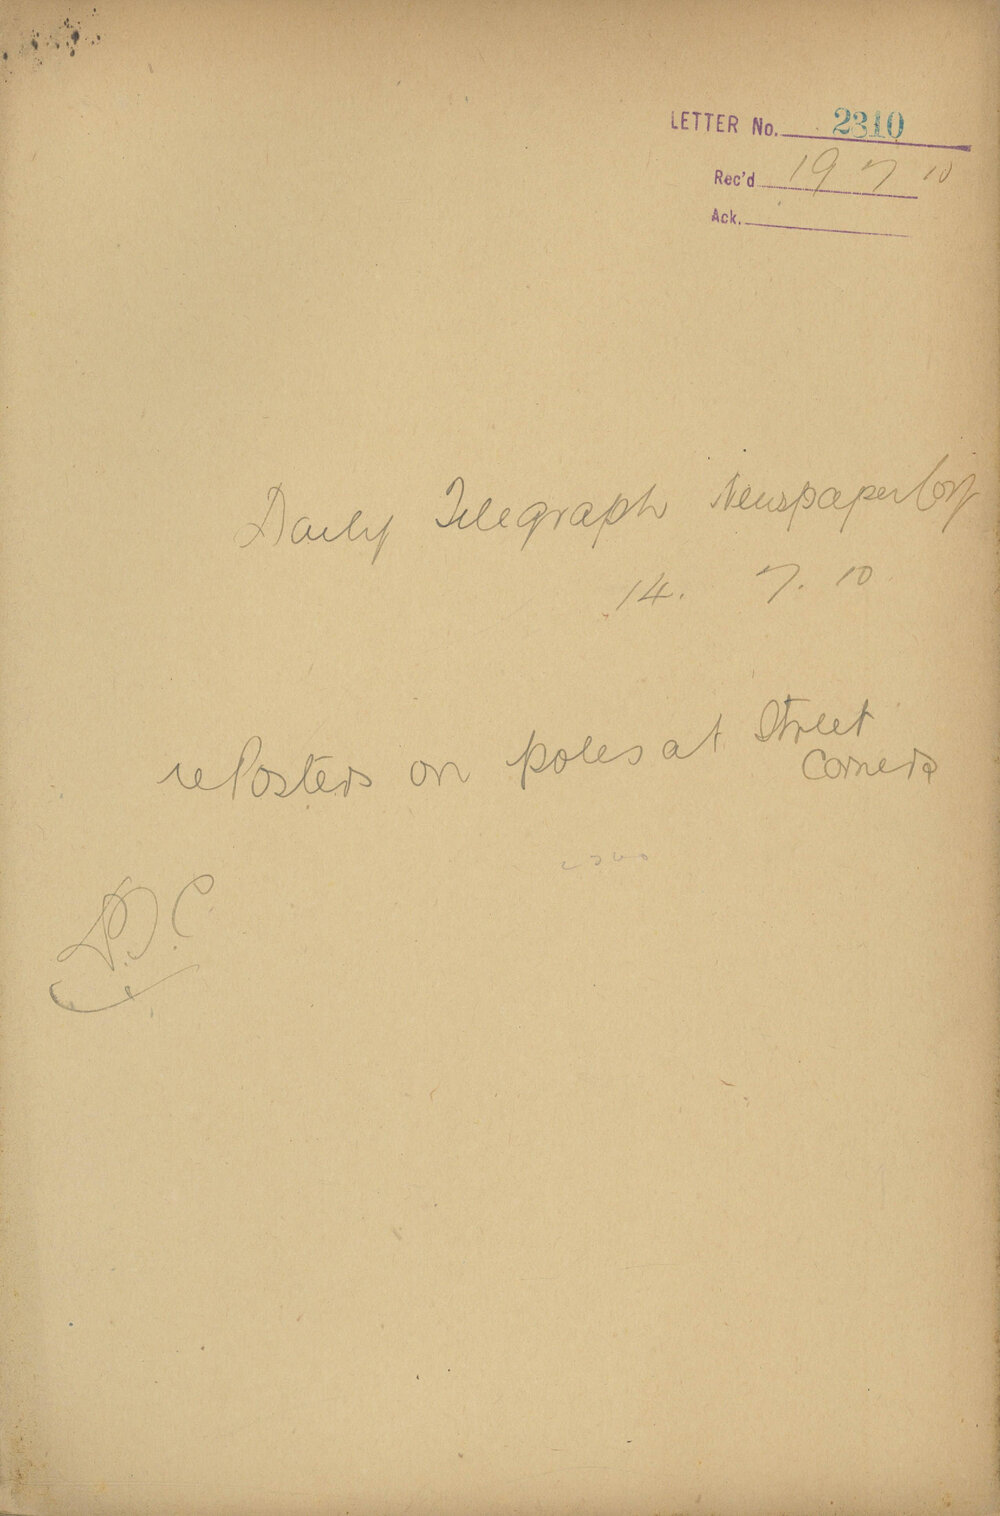 LETTER No. 2310
Rec'd 19 7 10
Ack.
Daily Telegraph Newspaper Coy
14. 7. 10
re Posters on poles at Street
Corners